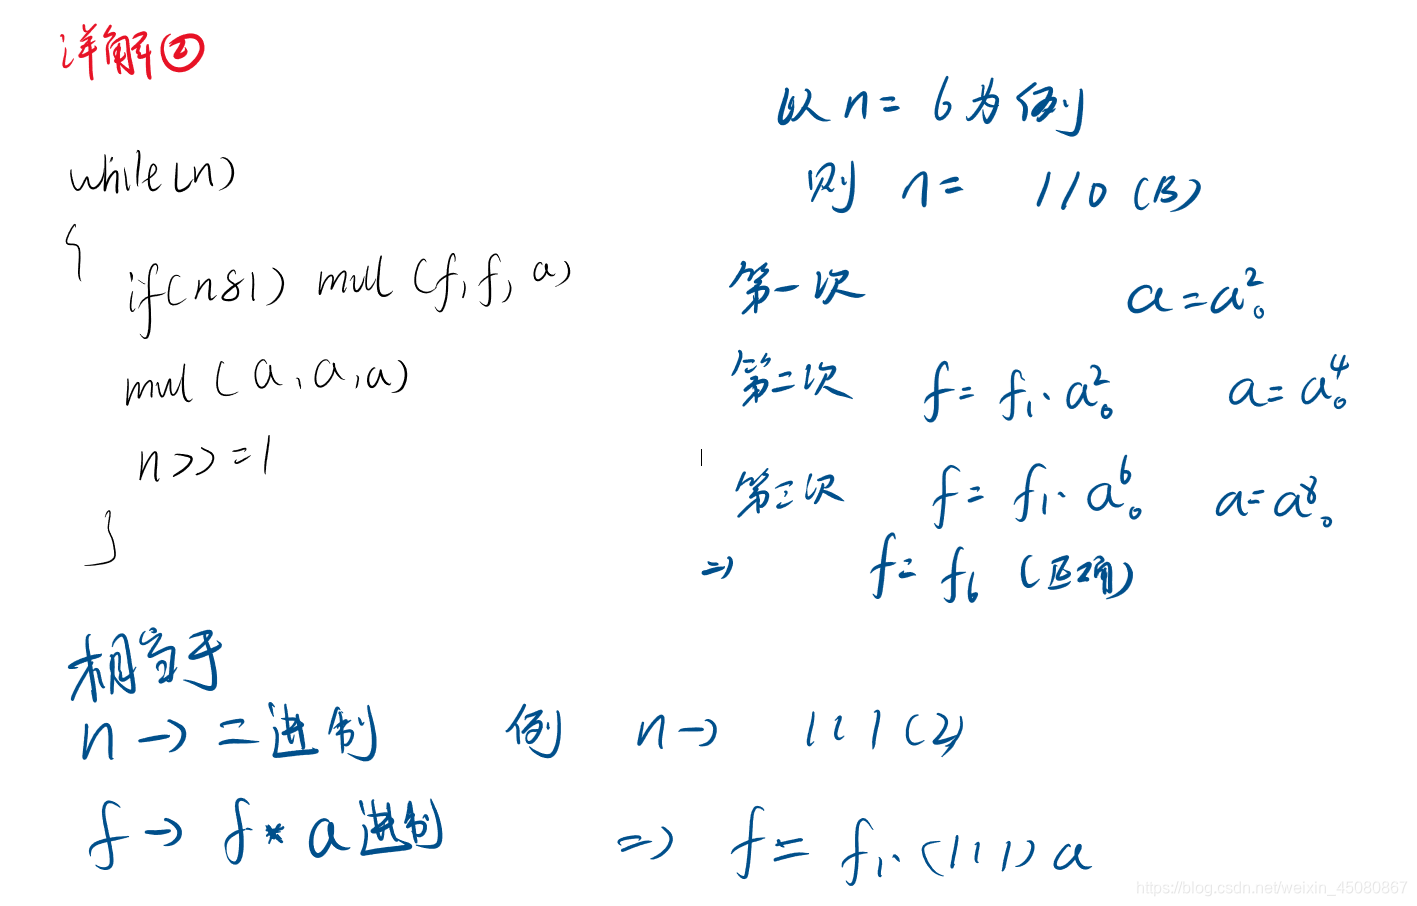 详解②
while(n)
{
if(n&1) mul(f,f,a)
mul(a,a,a)
n>>=1
}
以n=6为例
则 n= 110(B)
第一次 a=a₀²
第二次 f=f₁·a₀² a=a₀⁴
第三次 f=f₁·a₀⁶ a=a₀⁸
=> f=f₆ (正确)
相当于
n→二进制 例 n→ 111(2)
f→f*a进制 => f=f₁·(111)a
https://blog.csdn.net/weixin_45080867